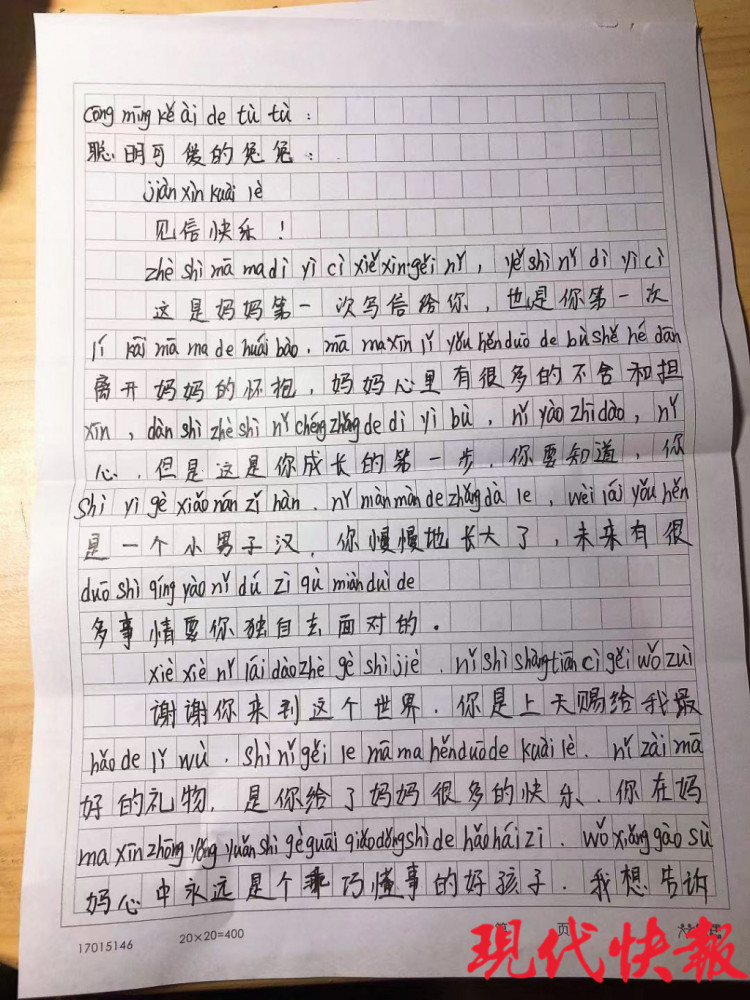 cōng míng kě ài de tù tù：
聪明可爱的兔兔：
jiàn xìn kuài lè
见信快乐！
zhè shì mā ma dì yí cì xiě xìn gěi nǐ，yě shì nǐ dì yí cì
这是妈妈第一次写信给你，也是你第一次
lí kāi mā ma de huái bào．mā ma xīn lǐ yǒu hěn duō de bù shě hé dān
离开妈妈的怀抱，妈妈心里有很多的不舍和担
xīn，dàn shì zhè shì nǐ chéng zhǎng de dì yī bù，nǐ yào zhī dào，nǐ
心，但是这是你成长的第一步，你要知道，你
shì yí gè xiǎo nán zǐ hàn．nǐ màn màn de zhǎng dà le，wèi lái yǒu hěn
是一个小男子汉，你慢慢地长大了，未来有很
duō shì qíng yào nǐ dú zì qù miàn duì de
多事情要你独自去面对的。
xiè xiè nǐ lái dào zhè gè shì jiè．nǐ shì shàng tiān cì gěi wǒ zuì
谢谢你来到这个世界．你是上天赐给我最
hǎo de lǐ wù．shì nǐ gěi le mā ma hěn duō de kuài lè．nǐ zài mā
好的礼物，是你给了妈妈很多的快乐、你在妈
ma xīn zhōng yǒng yuǎn shì gè guāi qiǎo dǒng shì de hǎo hái zi．wǒ xiǎng gào sù
妈心中永远是个乖巧懂事的好孩子．我想告诉
17015146 20×20=400 第 页
现代快報